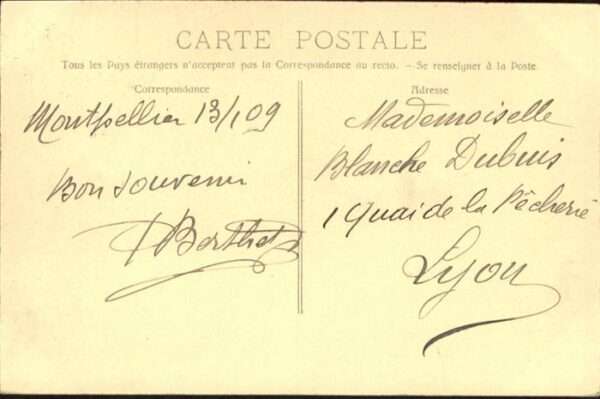 CARTE POSTALE
Tous les Pays étrangers n'acceptent pas la Correspondance au recto. - Se renseigner à la Poste.
Correspondance
Montpellier 13/1 09
Bon souvenir
Berthet
Adresse
Mademoiselle
Blanche Dubuis
1 Quai de la Pêcherie
Lyon